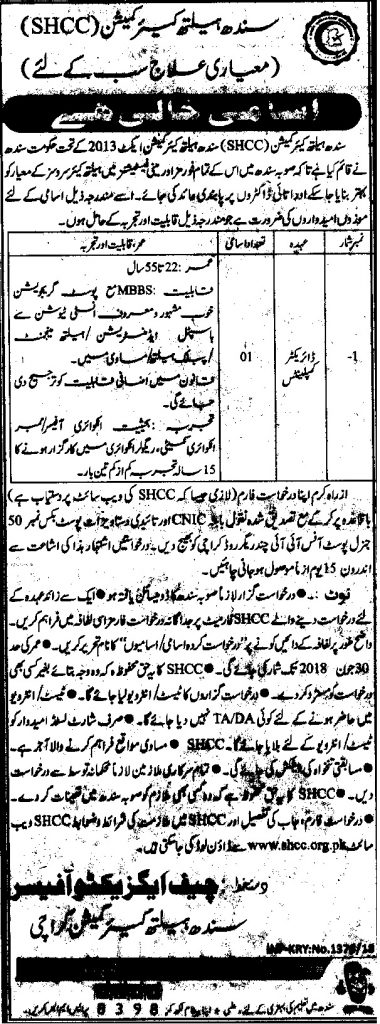 سندھ ہیلتھ کیئر کمیشن (SHCC)
(معیاری علاج سب کے لئے)
اسامی خالی ہے
سندھ ہیلتھ کیئر کمیشن (SHCC) سندھ ہیلتھ کیئر کمیشن ایکٹ 2013 کے تحت حکومت سندھ
نے قائم کیا ہے تاکہ صوبہ سندھ میں اس کے تمام فورمز اور مینی فیسٹیشنز میں ہیلتھ کیئر سروسز کے معیار کو
بہتر بنایا جا سکے اور اتائی ڈاکٹروں پر پابندی عائد کی جائے۔ اسے مندرجہ ذیل اسامی کے لئے
موزوں امیدواروں کی ضرورت ہے جو مندرجہ ذیل قابلیت اور تجربہ کے حامل ہوں۔
نمبر شمار عہدہ تعداد اسامی عمر، قابلیت اور تجربہ
1- ڈائریکٹر کمپلینٹس 01
عمر: 22 تا 55 سال
قابلیت: MBBS مع پوسٹ گریجویشن
خوب مشہور و معروف انسٹی ٹیوشن سے
ہاسپٹل ایڈمنسٹریشن / ہیلتھ مینجمنٹ
/ پبلک ہیلتھ / مساوی میں۔
قانون میں اضافی قابلیت کو ترجیح دی
جائے گی۔
تجربہ: بحیثیت انکوائری آفیسر / ممبر
انکوائری کمیٹی، ریگولر انکوائری میں کارگزار ہونے کا
15 سالہ تجربہ کم از کم تین بار۔
ازراہ کرم اپنا درخواست فارم (لازمی جیسا کہ SHCC کی ویب سائٹ پر دستیاب ہے)
باقاعدہ پر کر کے مع تصدیق شدہ نقول CNIC اور تائیدی دستاویزات پوسٹ بکس نمبر 50
جنرل پوسٹ آفس آئی آئی چندریگر روڈ کراچی کو بھیج دیں۔ درخواستیں اشتہار ہذا کی اشاعت سے
اندرون 15 یوم از ما موصول ہو جانی چاہئیں۔
نوٹ:۔ ● درخواست گزار لازماً صوبہ سندھ کا ڈومیسائل یافتہ ہو ● ایک سے زائد عہدہ کے
لئے درخواست دینے والے SHCC فارمیٹ پر جداگانہ درخواست فارمز اسی لفافہ میں فراہم کریں۔
واضح طور پر لفافہ کے دائیں کونے پر "درخواست کردہ اسامی / اسامیوں" کا نام تحریر کریں۔ ● عمر کی حد
30 جون 2018 تک شمار کی جائے گی۔ ● SHCC کا یہ حق محفوظ ہے کہ وہ وجہ بتائے بغیر کسی بھی
درخواست کو مسترد کر دے۔ ● درخواست گزاروں کا ٹیسٹ / انٹرویو لیا جائے گا۔ ● ٹیسٹ / انٹرویو
میں حاضر ہونے کے لئے کوئی TA/DA نہیں دیا جائے گا۔ ● صرف شارٹ لسٹڈ امیدوار کو
ٹیسٹ / انٹرویو کے لئے بلایا جائے گا۔ ● SHCC مساوی مواقع فراہم کرنے والا آجر ہے۔
● مسابقتی تنخواہ کی پیشکش کی جائے گی۔ ● تمام سرکاری ملازمین لازماً محکمانہ توسط سے درخواست
دیں۔ ● SHCC کا یہ حق محفوظ ہے کہ وہ کسی بھی ملازم کو صوبہ سندھ میں تعینات کر دے۔
● درخواست فارم، جاب کی تفصیل اور SHCC میں ملازمت کی شرائط و ضوابط SHCC ویب
سائٹ www.shcc.org.pk سے ڈاؤن لوڈ کی جا سکتی ہیں۔
دستخط: چیف ایگزیکٹو آفیسر
سندھ ہیلتھ کیئر کمیشن کراچی
INF-KRY:No.1376/18
سندھ میں تعلیم کی بہتری کے لئے، اپنا پیغام لکھ کر 8398 پر ایس ایم ایس کریں۔